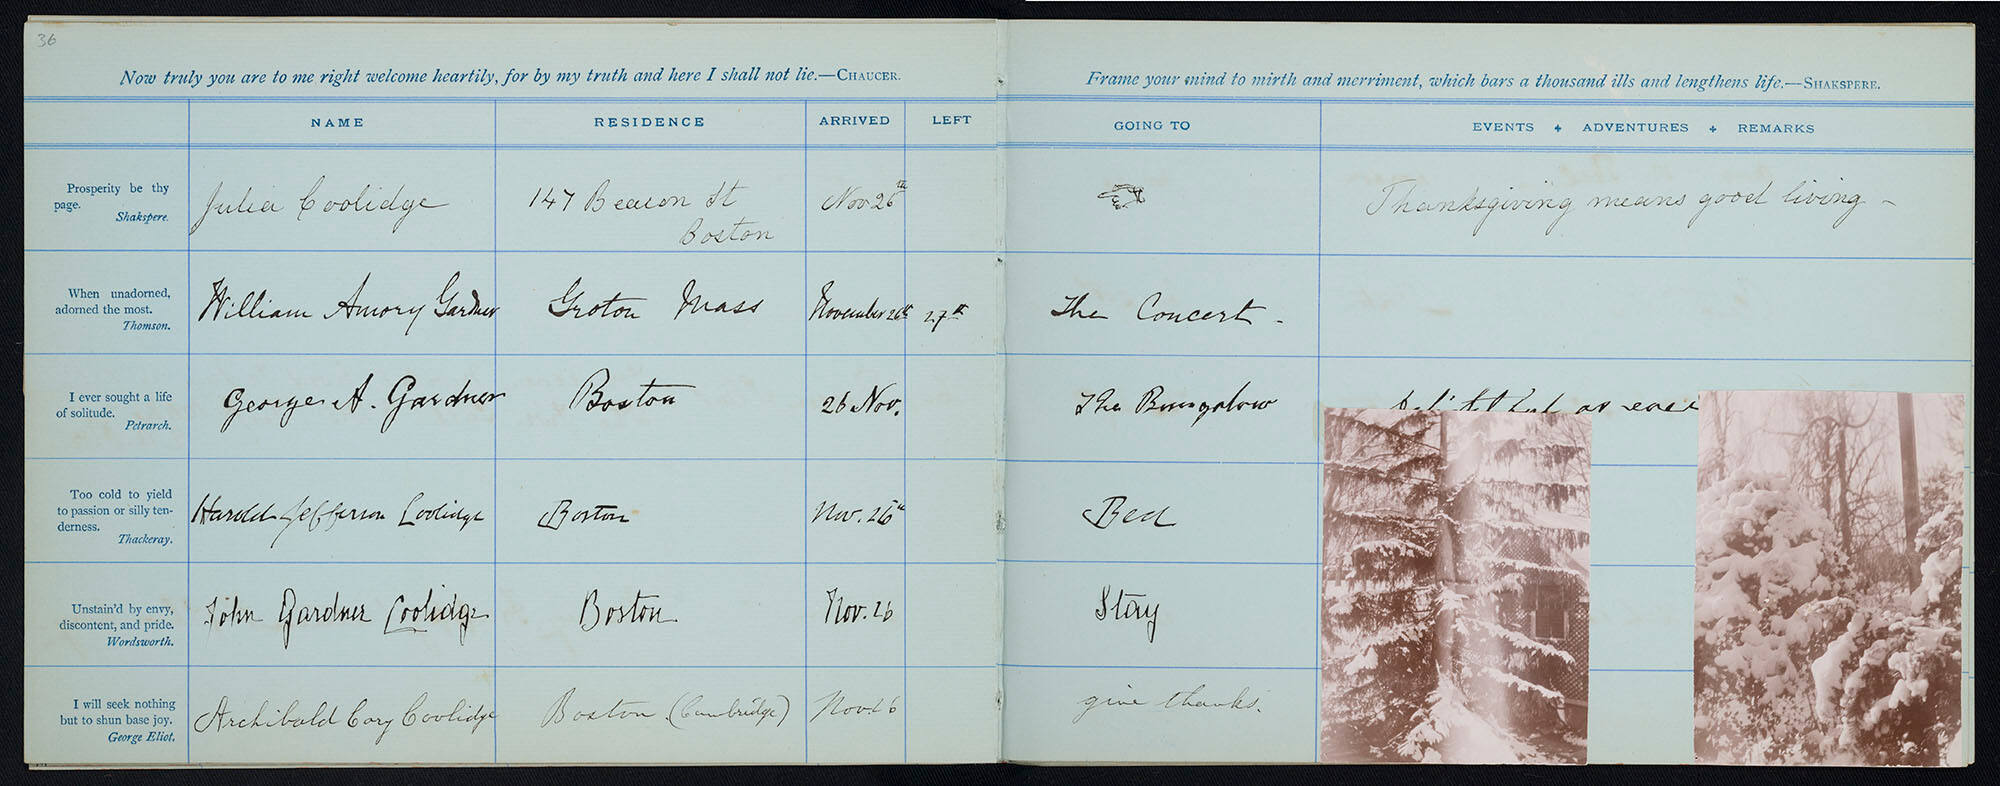 36
Now truly you are to me right welcome heartily, for by my truth and here I shall not lie.—CHAUCER.
Frame your mind to mirth and merriment, which bars a thousand ills and lengthens life.—SHAKSPERE.
NAME RESIDENCE ARRIVED LEFT GOING TO EVENTS + ADVENTURES + REMARKS
Prosperity be thy
page.
Shakspere.
Julia Coolidge 147 Beacon St
Boston
Nov 26th
Thanksgiving means good living -
When unadorned,
adorned the most.
Thomson.
William Amory Gardner Groton Mass November 26th 27th The Concert -
I ever sought a life
of solitude.
Petrarch.
George A. Gardner Boston 26 Nov. The Bungalow
Too cold to yield
to passion or silly ten-
derness.
Thackeray.
Harold Jefferson Coolidge Boston Nov. 26th Bed
Unstain'd by envy,
discontent, and pride.
Wordsworth.
John Gardner Coolidge Boston Nov. 26 Stay
I will seek nothing
but to shun base joy.
George Eliot.
Archibald Cary Coolidge Boston (Cambridge) Nov 26 give thanks.